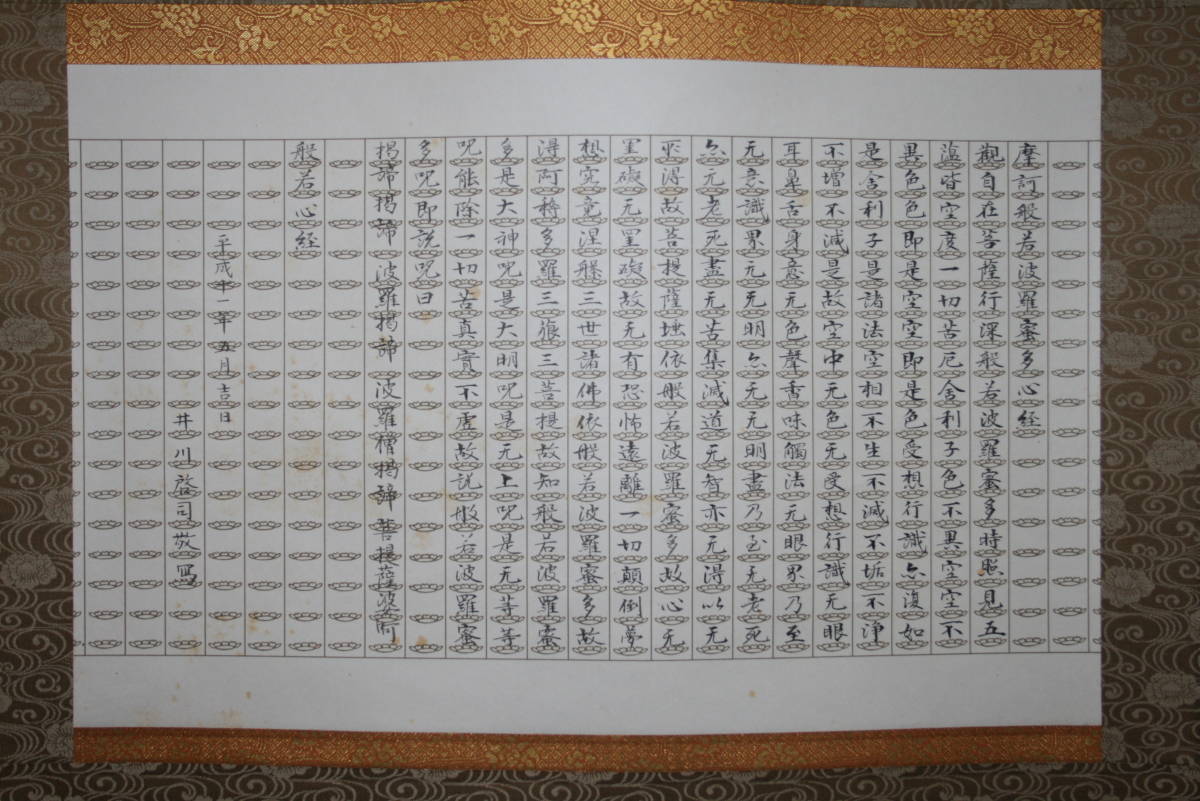 摩訶般若波羅蜜多心経
觀自在菩薩行深般若波羅蜜多時照見五
蕰皆空度一切苦厄舍利子色不異空空不
異色色即是空空即是色受想行識亦復如
是舍利子是諸法空相不生不滅不垢不淨
不增不減是故空中无色无受想行識无眼
耳鼻舌身意无色聲香味觸法无眼界乃至
无意識界无无明亦无无明盡乃至无老死
亦无老死盡无苦集滅道无智亦无得以无
所得故菩提薩埵依般若波羅蜜多故心无
罣礙无罣礙故无有恐怖遠離一切顛倒夢
想究竟涅槃三世諸佛依般若波羅蜜多故
得阿耨多羅三藐三菩提故知般若波羅蜜
多是大神呪是大明呪是无上呪是无等等
呪能除一切苦真實不虚故説般若波羅蜜
多呪即説呪曰
揭諦揭諦 波羅揭諦 波羅僧揭諦 菩提薩婆訶
般若心経
平成十一年五月吉日
井川啓司敬寫